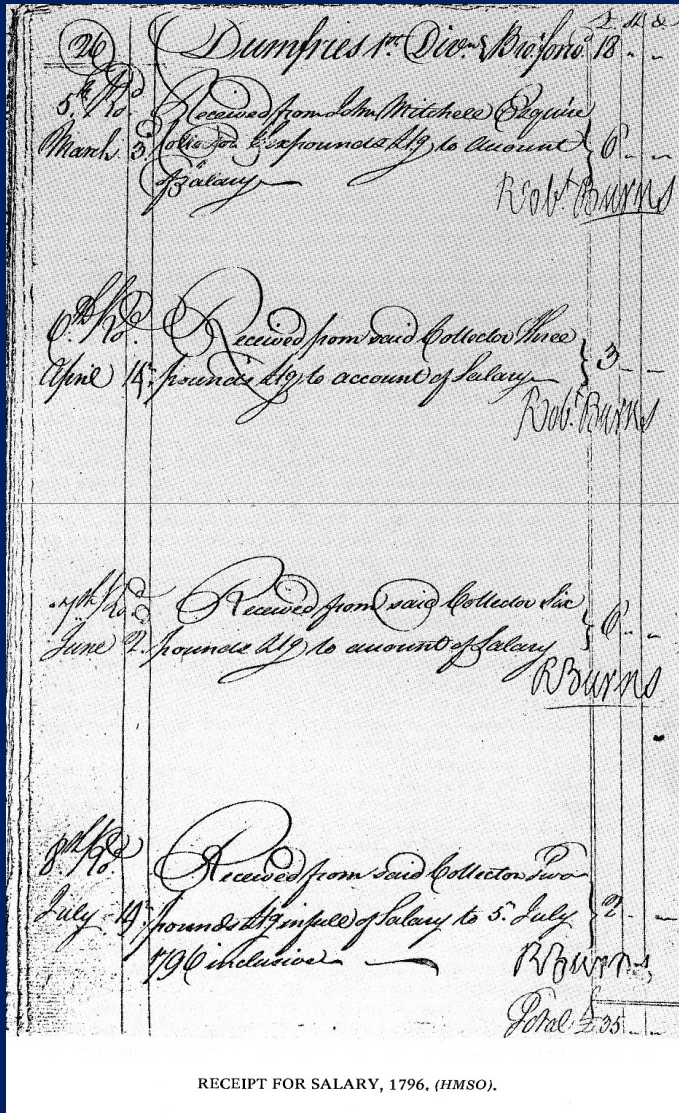 £ S D
26 Dumfries 1st Divn. Bro't forwd. 18 - -
5th Rd. Received from John Mitchell Esquire
March 3d Collector Six pounds Stg to account 6 - -
of Salary
Robt. Burns
6th Rd. Received from said Collector Three
April 14th pounds Stg to account of Salary 3 - -
Robt. Burns
7th Rd. Received from said Collector Six
June 2d pounds Stg to account of Salary 6 - -
R Burns
8th Rd. Received from said Collector Two
July 14th pounds Stg in full of Salary to 5th July 2 - -
1796 inclusive
R Burns
Total £ 35 - -
RECEIPT FOR SALARY, 1796. (HMSO).